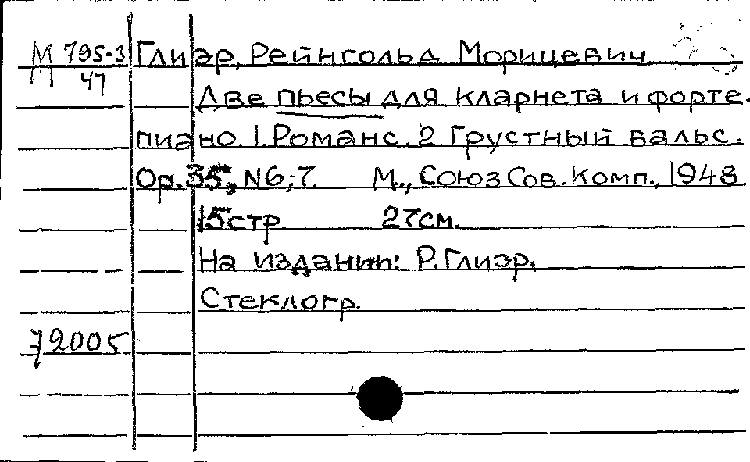 М 795-3 Глиэр, Рейнгольд Морицевич
47
Две пьесы для кларнета и форте-
пиано. 1. Романс. 2 Грустный вальс.
Ор. 35, N6,7. М., Союз Сов. Комп., 1948
15стр 27см.
На издании: Р. Глиэр.
Стеклогр.
72005